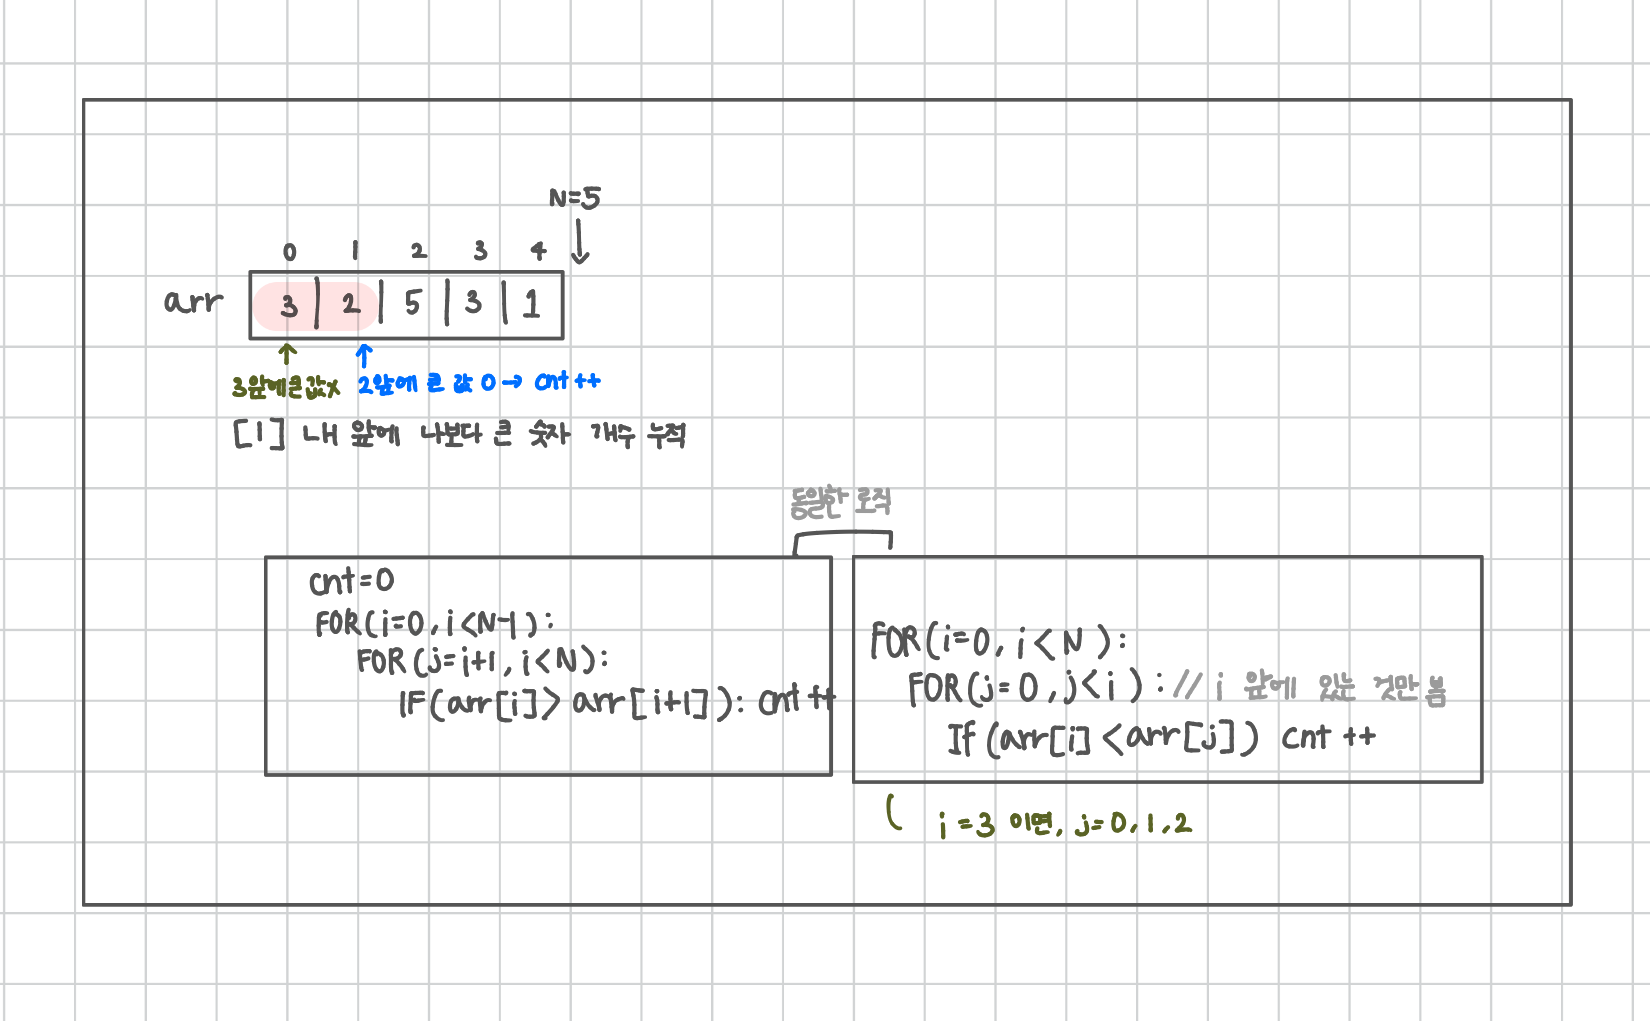 N=5
0 1 2 3 4
arr 3 2 5 3 1
3앞에큰값x 2앞에 큰 값 0 → cnt ++
[1] 내 앞에 나보다 큰 숫자 개수 누적
동일한 로직
cnt=0
FOR(i=0, i<N-1):
FOR(j=i+1, i<N):
IF(arr[i]> arr[i+1]): cnt++
FOR(i=0, i<N ):
FOR(j=0, j<i ): // i 앞에 있는 것만 봄
If (arr[i] <arr[j]) cnt ++
i=3 이면, j=0,1,2